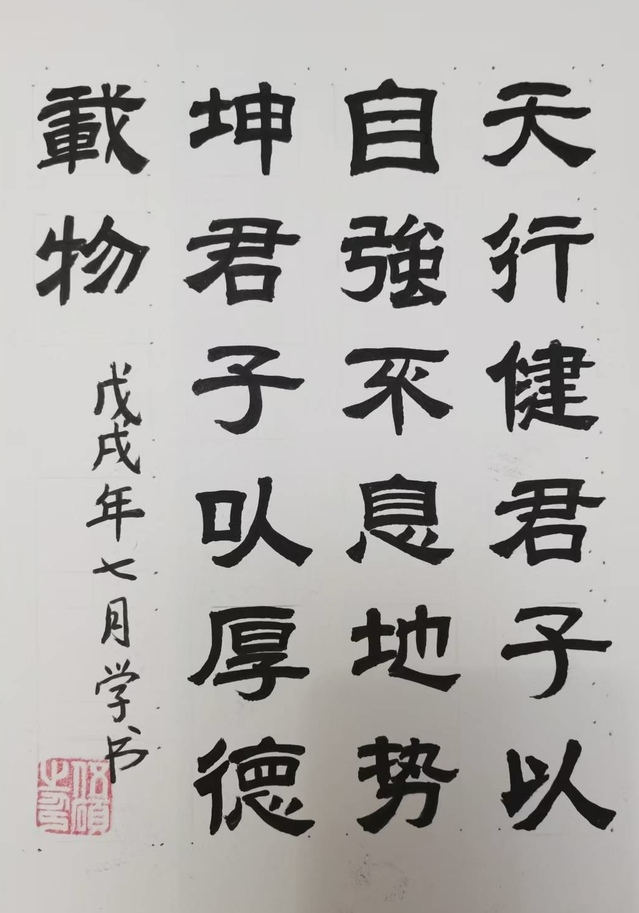 天行健君子以
自強不息地势
坤君子以厚德
載物
戊戌年七月学书